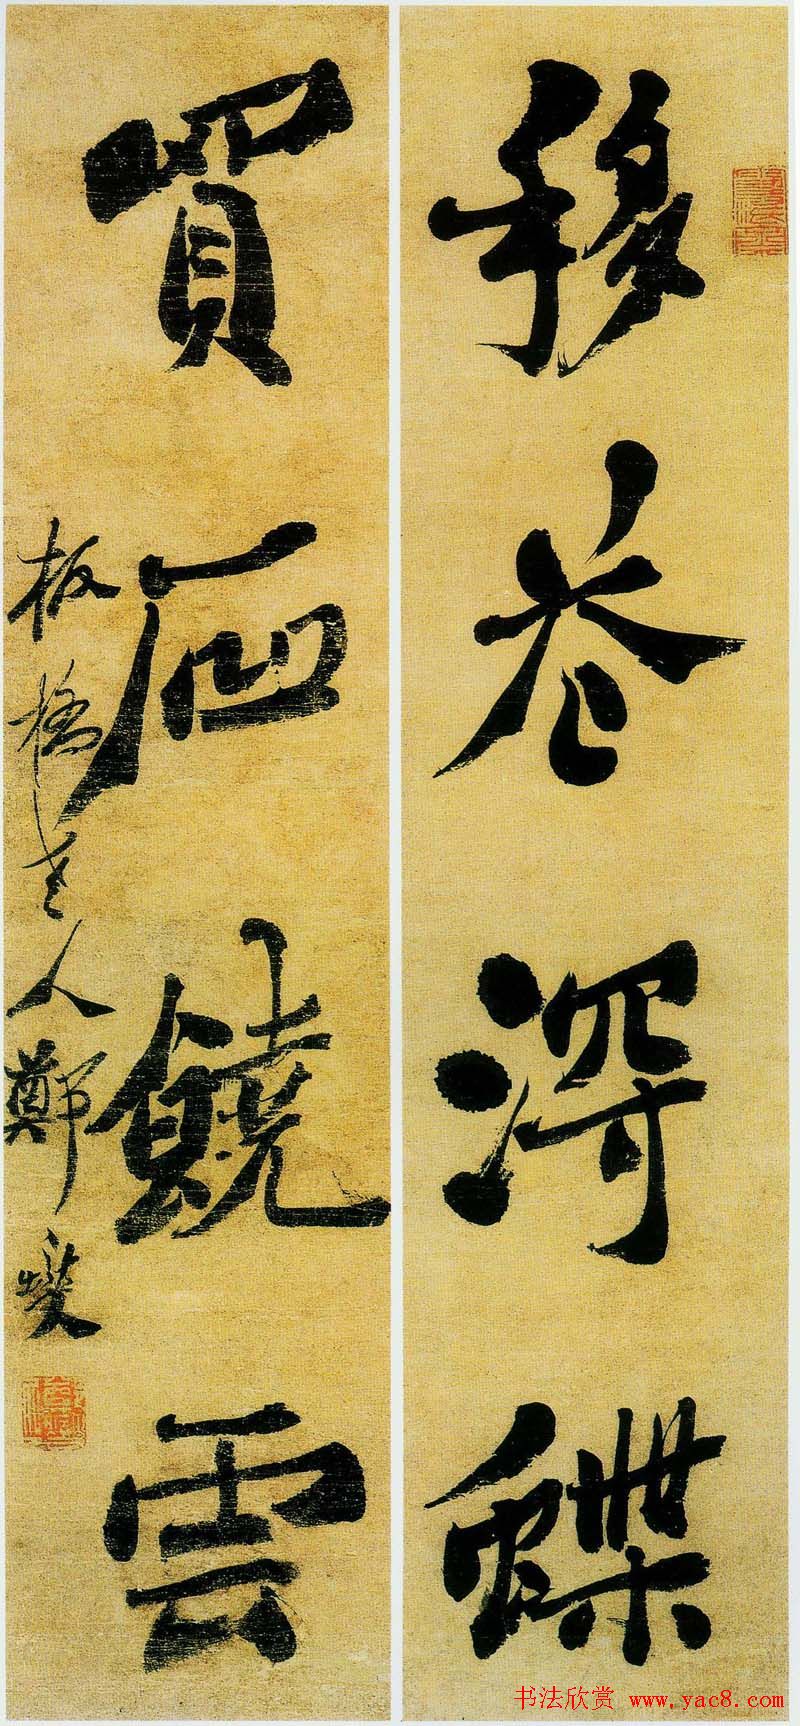 移花淂蝶
買石饒雲
板橋老人鄭燮
书法欣赏 www.yac8.com